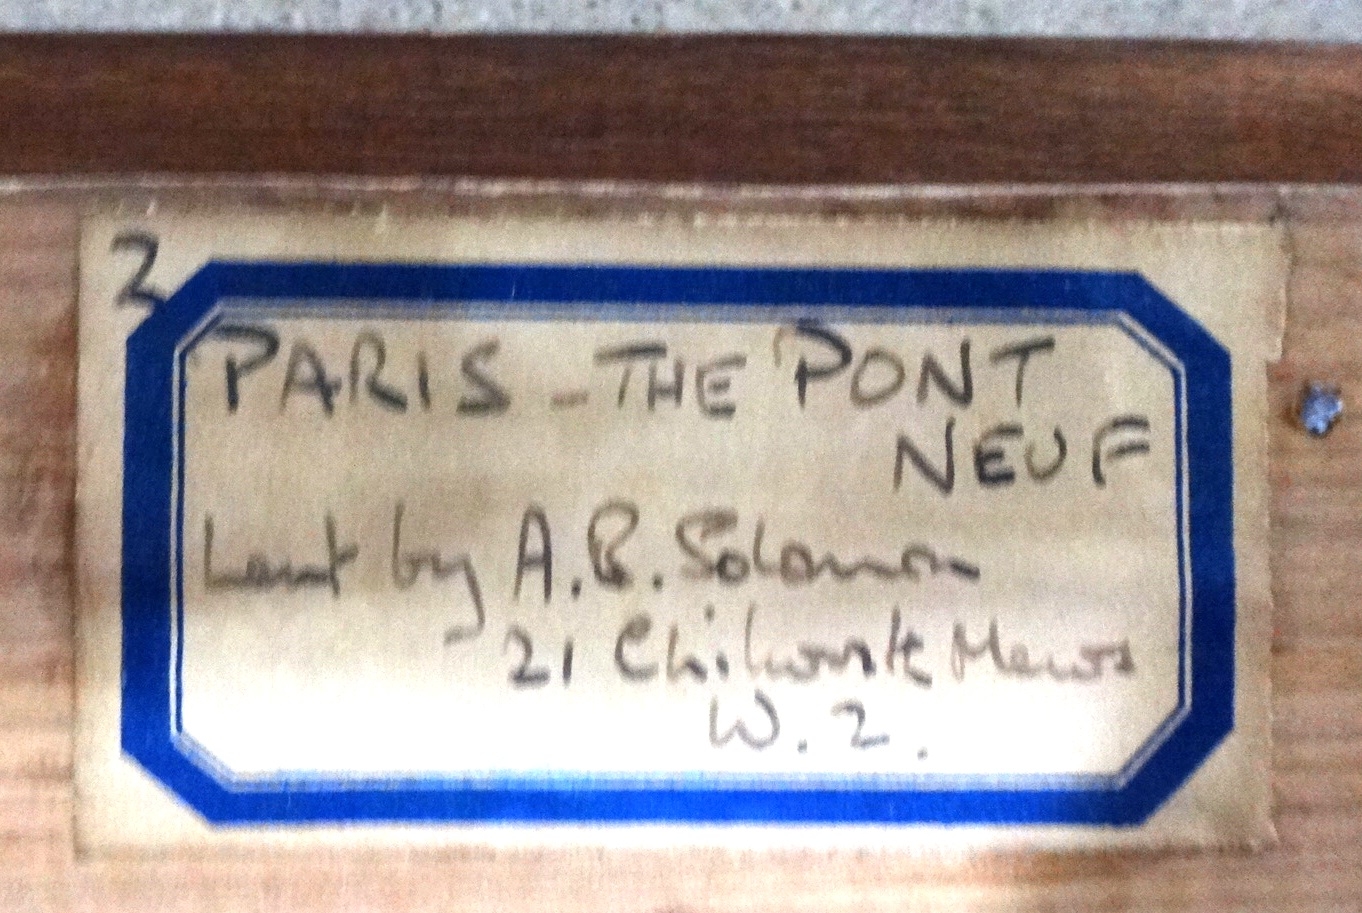 2
PARIS - THE PONT
NEUF
Lent by A.B. Solomon
21 Chilworth Mews
W.2.